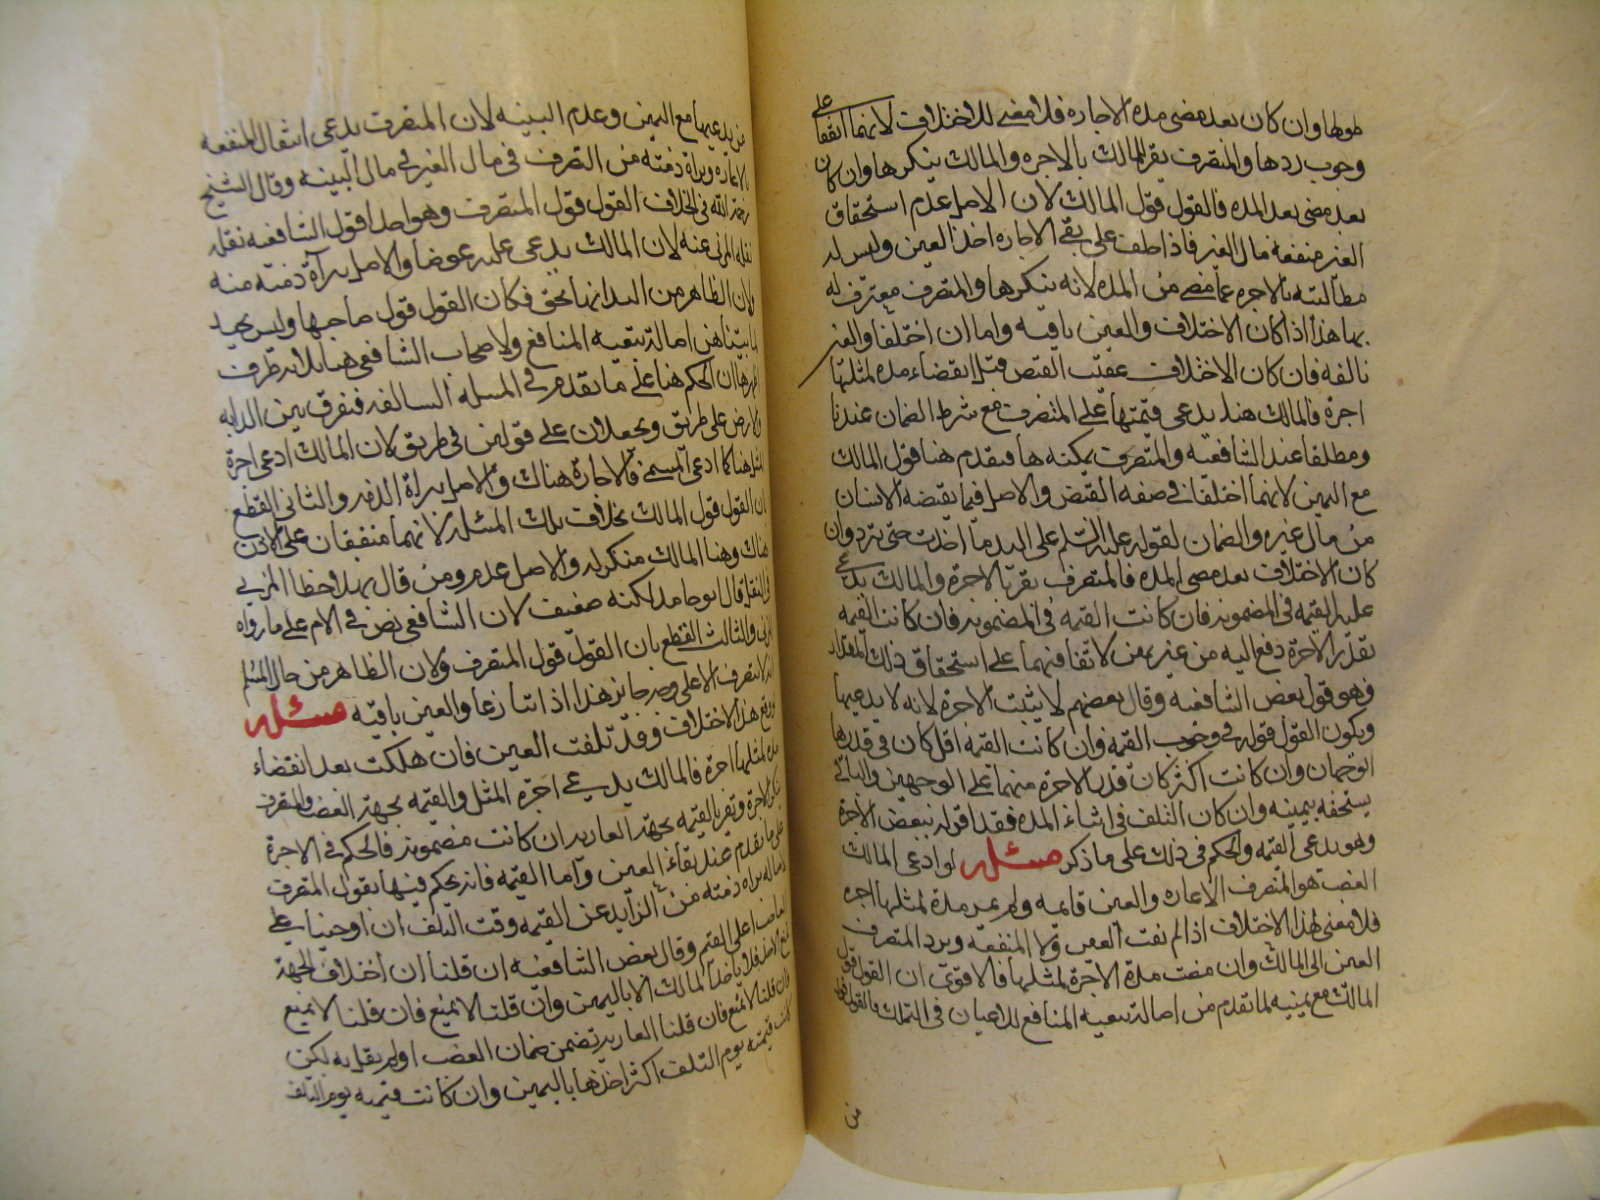 طوطها وان كان بعد مضى مدة الاجاره فلا معنى للاختلاف لانهما اتفقا على
وجوب ردها والمتصرف يقر للمالك بالاجره والمالك ينكرها وان كان
بعد مضى بعد المده فالقول قول المالك لان الاصل عدم استحقاق
الغير منفعه مال الغير فاذا حلف على بقى الاجاره اخذ العين وليس له
مطالبته بالاجره عما مضى من المده لانه ينكرها والمتصرف معترف له
بها هذا اذا كان الاختلاف والعين باقيه واما ان اختلفا والعين
تالفه فان كان الاختلاف عقيب القبض قبل انقضاء مده لمثلها
اجرة فالمالك هنا يدعى قيمتها على المتصرف مع شرط الضمان عندنا
ومطلقا عند الشافعيه والمتصرف ينكره ها فيقدم هنا قول المالك
مع اليمين لانهما اختلفا فى صفه القبض والاصل فيما يقبضه الانسان
من مال غيره الضمان لقوله عليه السلم على اليد ما اخذت حتى ترد وان
كان الاختلاف بعد مضى المده فالمتصرف يقر بالاجرة والمالك يدعى
عليه القيمه فى المضمونه فان كانت القيمه فى المضمونه فان كانت القيمه
بقدر الاجرة دفع اليه من غير يمين لاتفاقهما على استحقاق ذلك المقدار
وهو قول بعض الشافعيه وقال بعضهم لا يثبت الاجرة لانه لا يدعيها
ويكون القول قوله فى وجوب القيمه وان كانت القيمه اقل كان فى قدرها
الوجهان وان كانت اكثر كان قدر الاجرة منهما على الوجهين والباقى
يستحقه بيمينه وان كان التلف فى اثناء المده فقد اقر له ببعض الاجرة
وهو يدعى القيمه والحكم فى ذلك على ما ذكر مسئله لو ادعى المالك
الغصب هو المتصرف الاعاره والعين قائمه ولم يمر مدة لمثلها اجره
فلا معنى لهذا الاختلاف اذا لم تفت العين ولا المنفعه ويرد المتصرف
العين الى المالك وان مضت مدة الاجرة لمثلها فالاقوى ان القول قول
المالك مع يمينه لما تقدم من اصاله تبعيه المنافع للاعيان فى التملك فالقول قول
من
من يدعيها مع اليمين وعدم البينه لان المتصرف يدعى انتقال المنفعه
بالاعاره وبراة ذمته من التصرف فى مال الغير فى مال البينه وقال الشيخ
رحمه الله فى الخلاف القول قول المتصرف وهو احد اقوال الشافعيه نقله
نقله المزنى عنه لان المالك يدعى عليه عوضا والاصل براة ذمته منه
ولان الظاهر من اليد انها بحق فكان القول قول صاحبها وليس بجيد
لما بيناه من اصاله تبعيه المنافع ولاصحاب الشافعى هنا ثلاثه طرف
اظهرها ان الحكم هنا على ما تقدم فى المسله السالفه فنفرق بين الدابه
والارض على طريق ويجعلان على قولين فى طريق لان المالك ادعى اجرة
المثل هنا كما ادعى المسمى فى الاجارة هناك والاصل براة الذمه والثانى القطع
ان القول قول المالك بخلاف تلك المسئله لانهما متفقان على الاذن
هناك وهنا المالك منكر له والاصل عدمه ومن قال بهذا خطا المزنى
فى النقل قال ابو حامد لكنه ضعيف لان الشافعى نص فى الام على ما رواه
المزنى والثالث القطع بان القول قول المتصرف ولان الظاهر من حال المسلم
انه لا يتصرف الا على وجه جائز هذا اذا تنازعا والعين باقيه مسئله
لو وقع هذا الاختلاف وقد تلفت العين فان هلكت بعد انقضاء
مدة لمثلها اجرة فالمالك يدعى اجرة المثل والقيمه بجهة الغصب والمتصرف
ينكر الاجرة ويقر بالقيمه بجهة العاريه ان كانت مضمونه فالحكم فى الاجرة
على ما تقدم عند بقاء العين واما القيمه فانه يحكم فيها بقول المتصرف
لاصاله براة ذمته من الزايد عن القيمه وقت التلف ان اوجبنا على
الغاصب اعلى القيم وقال بعض الشافعيه ان قلنا ان اختلاف الجهة
يمنع الاخذ فلا ياخذ المالك الا باليمين وان قلنا لا يمنع فان قلنا لا يمنع
فان قلنا لا يمنع فان قلنا العاريه تضمن ضمان الغصب او لم نقل به لكن
كانت قيمته يوم التلف اكثر اخذها باليمين وان كانت قيمه يوم التلف